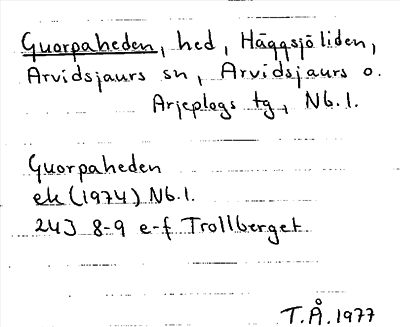 Guorpaheden, hed, Häggsjöliden,
Arvidsjaurs sn, Arvidsjaurs o.
Arjeplogs tg, Nb.l.
Guorpaheden
ek (1974) Nb.l.
24J 8-9 e-f Trollberget
T.Å. 1977